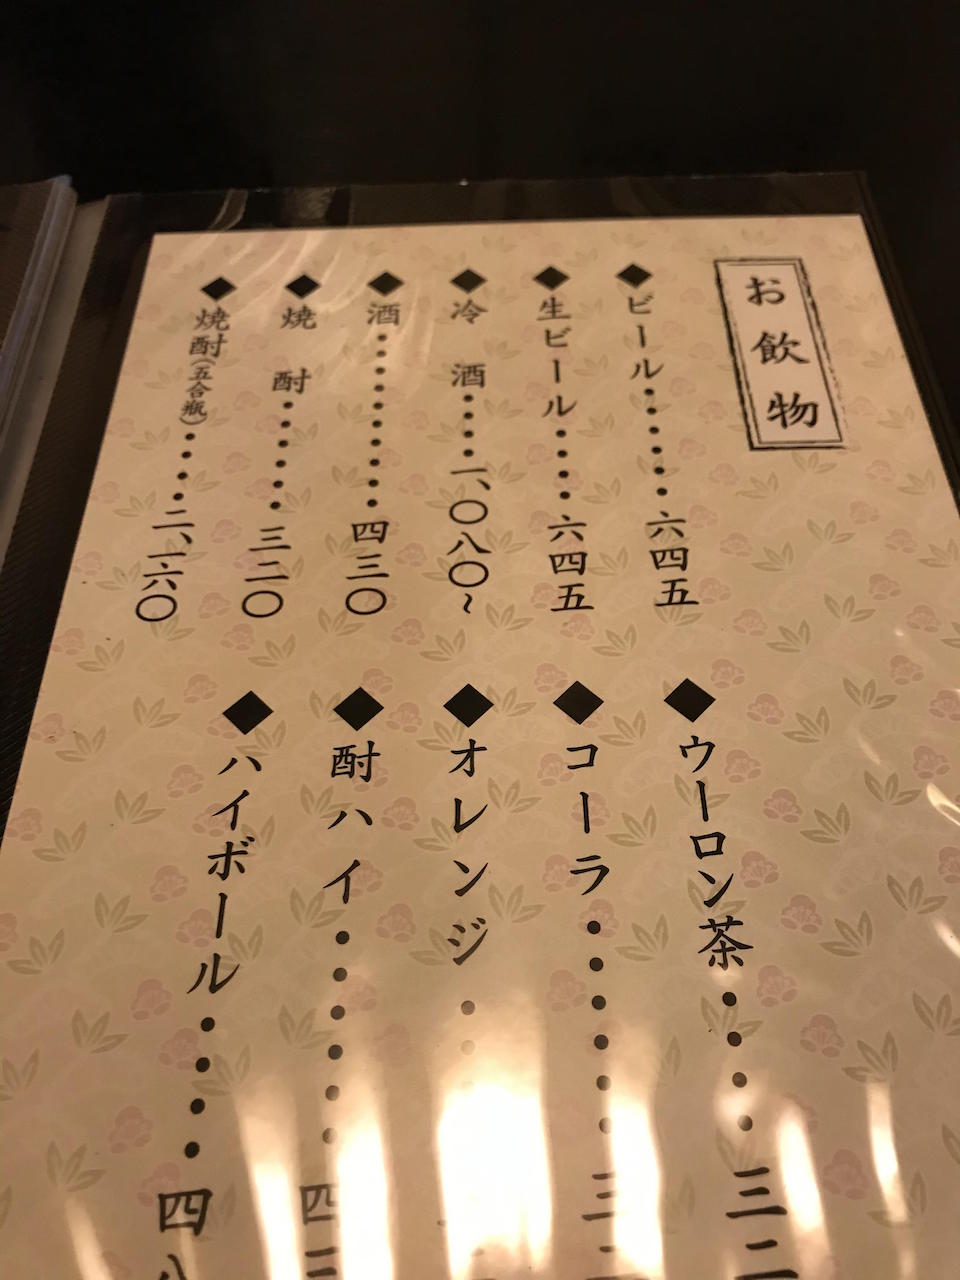 お飲物
◆ビール・・・・・・六四五
◆生ビール・・・・六四五
◆冷 酒・・・・一、〇八〇~
◆酒・・・・・・・・・・四三〇
◆焼 酎・・・・・・三二〇
◆焼酎(五合瓶)・・・・二、一六〇
◆ウーロン茶・・・・三二
◆コーラ・・・・・・三
◆オレンジ・・
◆酎ハイ・・・・・・四三
◆ハイボール・・・・四八